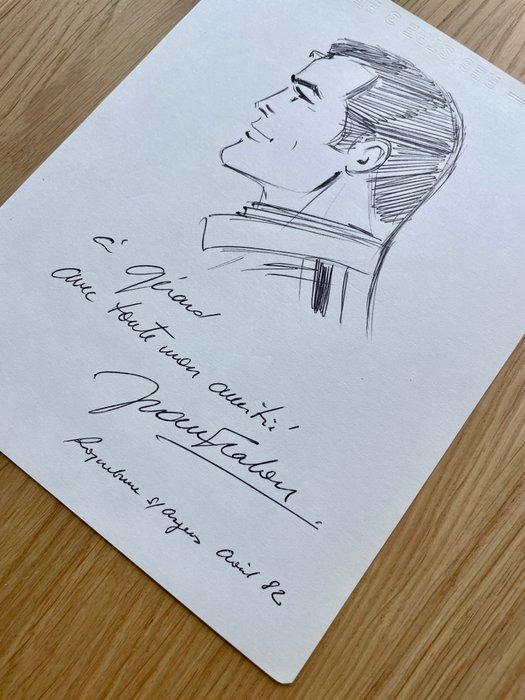 à Gérard
avec toute mon amitié
Jean Graton
Roquebrune s/Argens Août 82